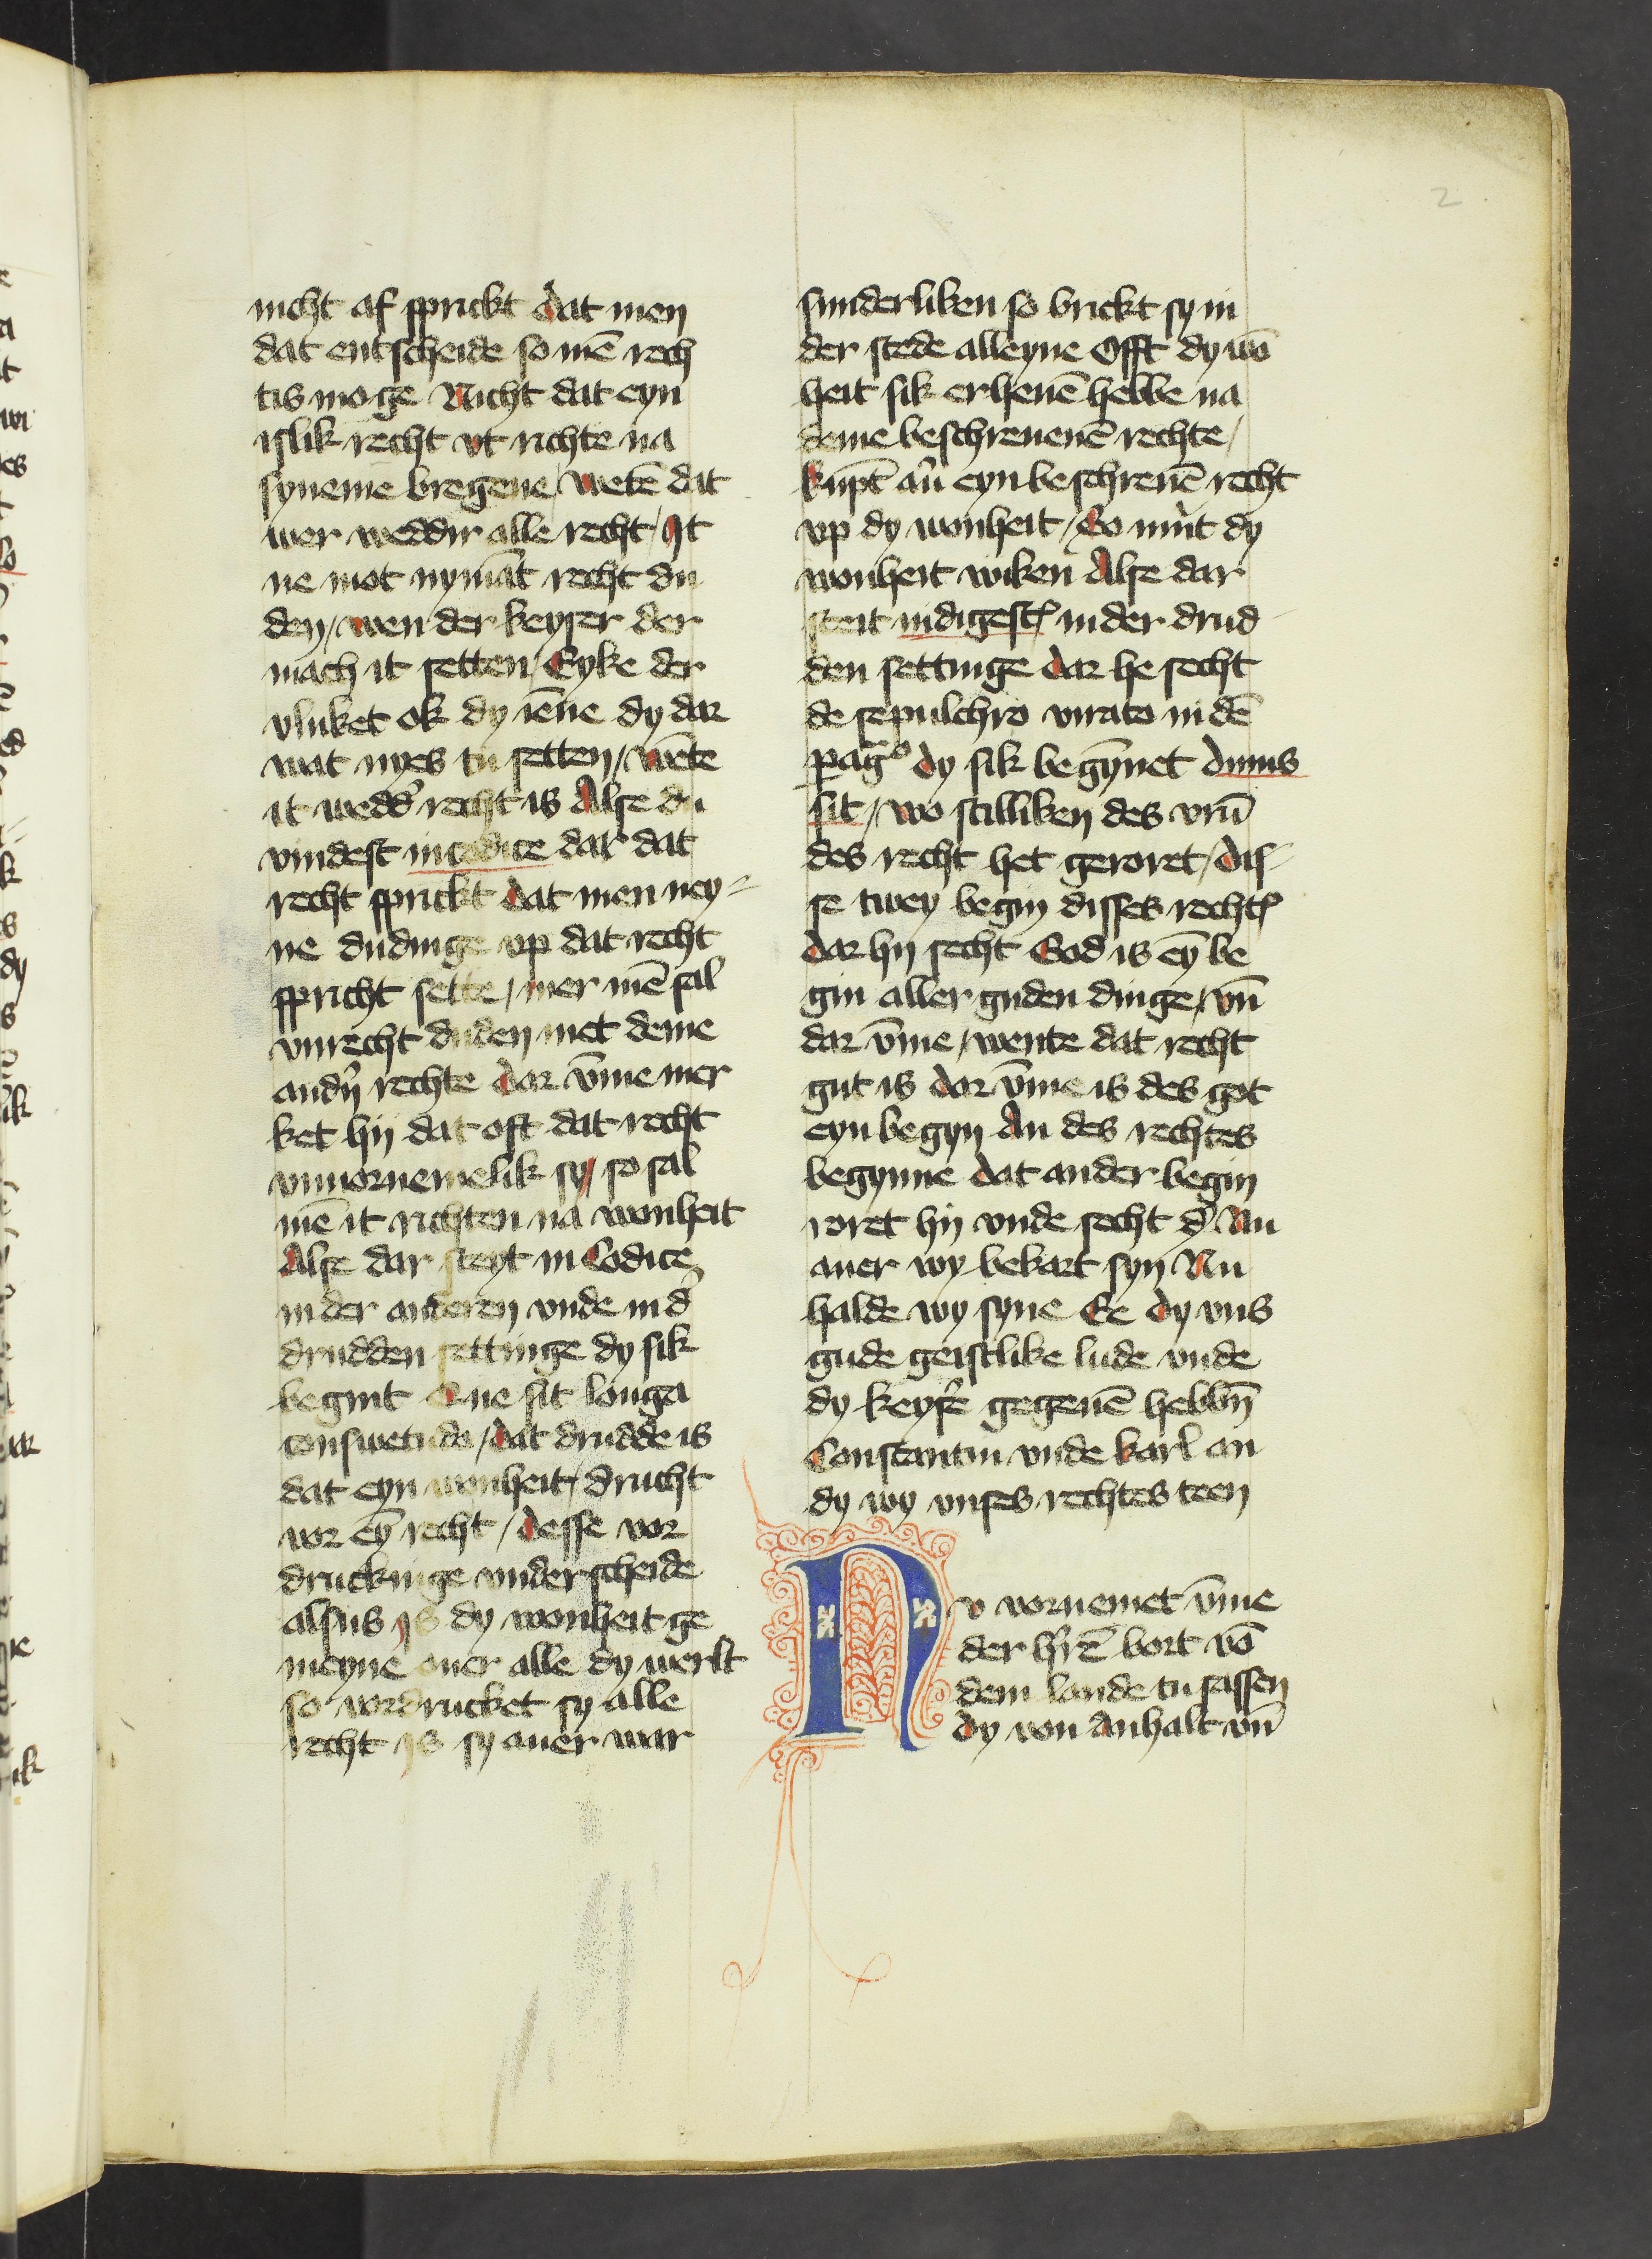 2
nicht af sprickt dat men
dat entscheide so mē rech
tis moge Nicht dat eyn
islik recht vt richte na
syneme bregene / wetē dat
wer weddir alle recht / It
ne mot nymāt recht du
den / wen der keyser der
mach it setten / Eyke der
vluket ok dy iēne dy dar
wat nyes tu setten / wēte
it wedd' recht is Alse du
vindest in codice dar dat
recht sprickt dat men ney-
ne dudinge vp dat recht
spricht sette / mer mē sal
vnrecht duden met deme
andn̄ rechte dar vm̄e mer
ket hy dat oft dat recht
vnuornemelik sy / so sal
mē it richten na wonheit
Alse dar steyt in Codice
in der anderen vnde in d'
drudden settinge dy sik
begint Que sit longa
conswetudo / dat drudde is
dat eyn wonheit / drucht
vor eȳ recht / desse vor
druckinge vnderscheide
alsus is dy wonheit ge
meyne ouer alle dy werlt
so vordrucket sy alle
recht is sy auer war
sunderliken so brickt sy in
der stede alleyne Offt dy wō
heit sik erheuē hebbe na
deme beschreuenē rechte /
kupt au' eyn beschreuē recht
vp dy wonheit / So mut dy
wonheit wiken Alse dar
steit in digest' in der drud-
den settinge dar he secht
de sepulchro virato in dē
pag'o dy sik begȳnet diuus
sit / wo stilliken des vrū
des recht het geroret / dis-
se twey begin disses recht'
dar hy secht God is eȳ be
gin aller guden dinge / vn̄
dar vm̄e / wente dat recht
gut is dar vm̄e is des got
eyn begyn An des rechtes
begynne dat ander begin
roret hy vnde secht d' Nu
auer wy bekart syn Nu
halde wy syne Ee dy vns
gude geistlike lude vnde
dy keys'e gegeuē hebbn̄
Constantin vnde karl an
dy wy vnses rechtes teen
Nv vornemet vm̄e
der h'rē bort vō
dem lande tu sassen
dy von Anhalt vn̄